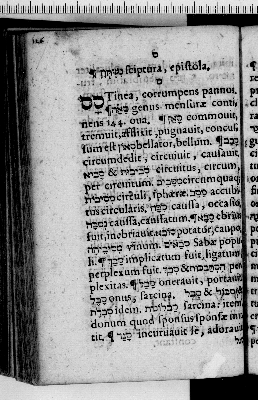 ס
¶ נשתון scriptura, epistola.
ס
סס Tinea, corrumpens pannos.
¶ סאה genus mensuræ conti
nens 144. oua. ¶ סאן commouit,
tremuit, afflixit, pugnauit, concus
sum est סואן bellator, bellum. ¶ סבב
circumdedit, circuiuit, causauit,
סביבות & סביב circuitus, circum,
per circuitum. סביבים circumquaq;
circuli, sphæræ. מסב accubi
tus circularis. סבה caussa, occasio,
caussa, caussatum. ¶ סבא ebrius
fuit, inebriauit. סובא potator, caupo,
vinum. סבאים Sabæ popu
li. ¶ סבך implicatum fuit, ligatum
perplexum fuit. per
plexitas. ¶ סבל onerauit, portauit
סבל & סבול onus, sarcina.
idem. סבלות sarcina: item
donum quod sponsus sponsæ mit
tit. ¶ סגד incuruauit se, adorauit